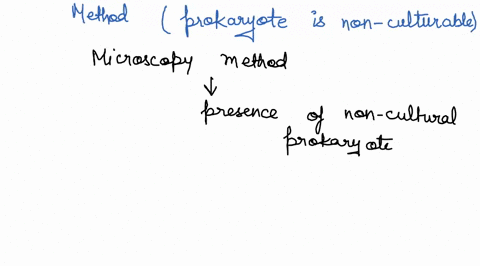 Method (prokaryote is non-culturable)
Microscopy method
↓
presence of non-cultural
prokaryote